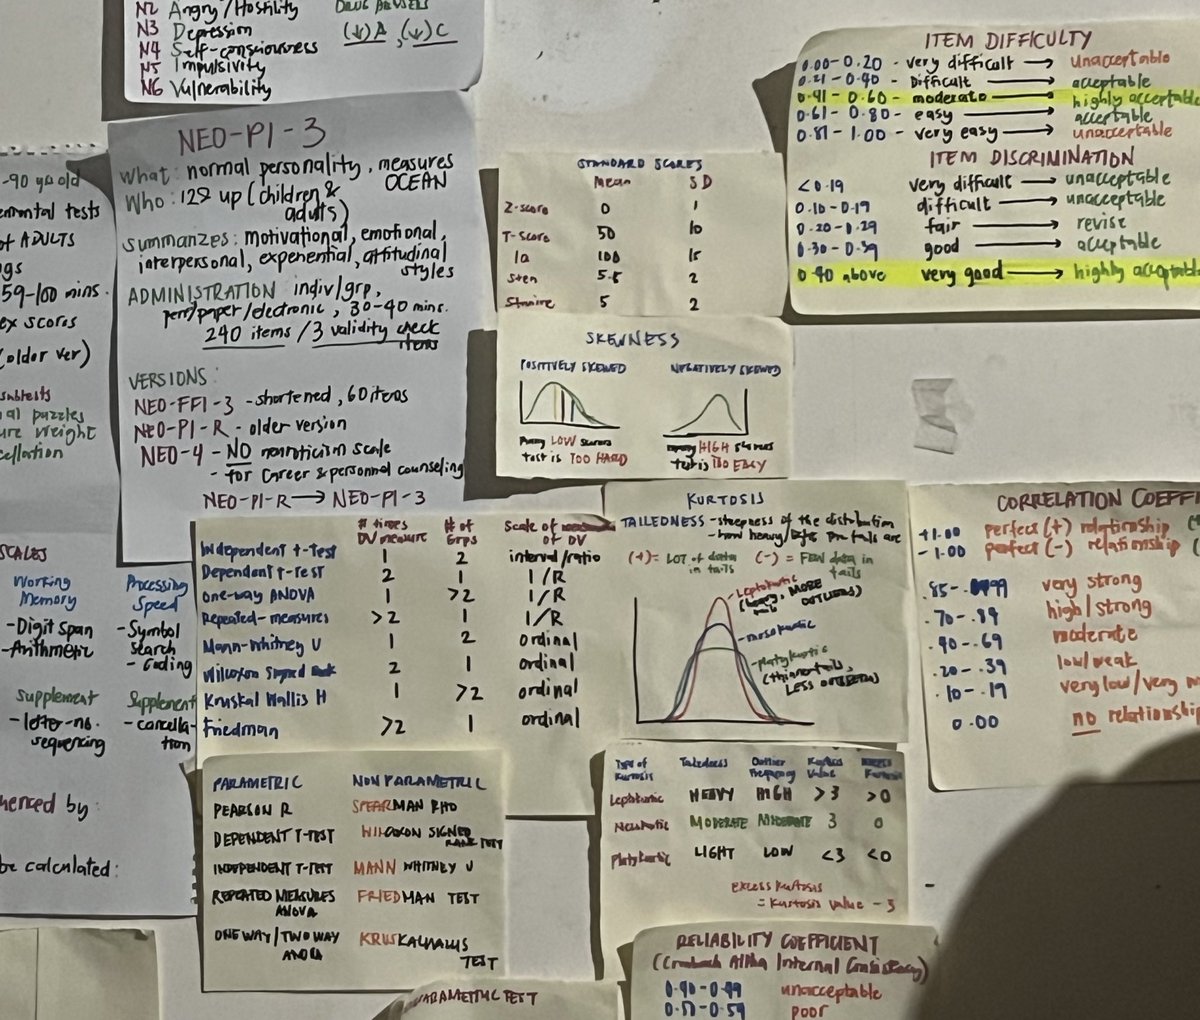 N2 Angry/Hostility
N3 Depression
N4 Self-consciousness
N5 Impulsivity
N6 Vulnerability
(↓)A, (↓)C
NEO-PI-3
What: normal personality, measures
OCEAN
Who: 12 & up (children &
adults)
summarizes: motivational, emotional,
interpersonal, experiential, attitudinal
styles
ADMINISTRATION indiv/grp,
pen/paper/electronic, 30-40 mins.
240 items / 3 validity check
items
VERSIONS:
NEO-FFI-3 - shortened, 60 items
NEO-PI-R - older version
NEO-4 - NO neuroticism scale
- for career & personnel counseling
NEO-PI-R → NEO-PI-3
-90 yo old
mental tests
of ADULTS
gs
59-100 mins.
ex scores
(older ver)
subtests
al puzzles
ure weight
cellation
SCALES
Working
Memory
-Digit Span
-Arithmetic
Supplement
-letter-no.
sequencing
Processing
Speed
-Symbol
search
-Coding
Supplement
-cancella-
tion
enced by:
be calculated:
STANDARD SCORES
Mean SD
Z-score 0 1
T-score 50 10
IQ 100 15
Sten 5.5 2
Stanine 5 2
SKEWNESS
POSITIVELY SKEWED
LOW scorers
test is TOO HARD
NEGATIVELY SKEWED
HIGH scorers
test is TOO EASY
ITEM DIFFICULTY
0.00-0.20 - very difficult → unacceptable
0.21-0.40 - Difficult → acceptable
0.41-0.60 - moderate → highly acceptable
0.61-0.80 - easy → acceptable
0.81-1.00 - very easy → unacceptable
ITEM DISCRIMINATION
<0.19 very difficult → unacceptable
0.10-0.19 difficult → unacceptable
0.20-0.29 fair → revise
0.30-0.39 good → acceptable
0.40 above very good → highly acceptable
KURTOSIS
TAILEDNESS - steepness of the distribution
- how heavy the tails are
(+) = LOT of data
in tails
(-) = FEW data in
tails
Leptokurtic
(heavy, MORE
OUTLIERS)
-mesokurtic
-platykurtic
(thinner tails,
LESS OUTLIERS)
CORRELATION COEFFI
+1.00 perfect (+) relationship
-1.00 perfect (-) relationship
.85- very strong
.70-.84 high/strong
.40-.69 moderate
.20-.39 low/weak
.10-.19 very low/very
0.00 no relationship
# times
DV measure
# of
Grps
Scale of
of DV
Independent t-Test 1 2 interval/ratio
Dependent t-Test 2 1 I/R
One-way ANOVA 1 >2 I/R
Repeated-measures >2 1 I/R
Mann-Whitney U 1 2 ordinal
Wilcoxon Signed Rank 2 1 ordinal
Kruskal Wallis H 1 >2 ordinal
Friedman >2 1 ordinal
PARAMETRIC NON PARAMETRIC
PEARSON R SPEARMAN RHO
DEPENDENT T-TEST WILCOXON SIGNED
RANK TEST
INDEPENDENT T-TEST MANN WHITNEY U
REPEATED MEASURES
ANOVA
FRIEDMAN TEST
ONE WAY/TWO WAY
ANOVA
KRUSKALWALLIS
TEST
Type of
Kurtosis
Tailedness
Outlier
Frequency
Kurtosis
Value
Excess
Kurtosis
Leptokurtic HEAVY HIGH >3 >0
Mesokurtic MODERATE MODERATE 3 0
Platykurtic LIGHT LOW <3 <0
EXCESS Kurtosis
= Kurtosis value - 3
RELIABILITY COEFFICIENT
(Cronbach Alpha Internal Consistency)
unacceptable
poor
PARAMETRIC TEST